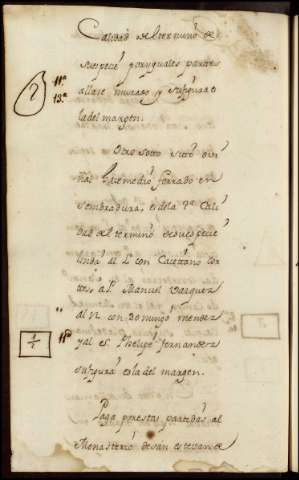 Calidad de el termino de
su espeçie y por yguales partes
allase murado y su figura es
la del margen.
Otro sotto sitto
más que medio ferrado en
sembradura, es de la 2.ª Cali
dad al termino de su espeçie
linda al L. con Caiettano Cor
tes al P. Manuel Vazquez
al N. con Domingo mendez
y al S. Phelipe fernandez
su figura es la del margen.
Paga por estas partidas al
Monasterio de san estevan de